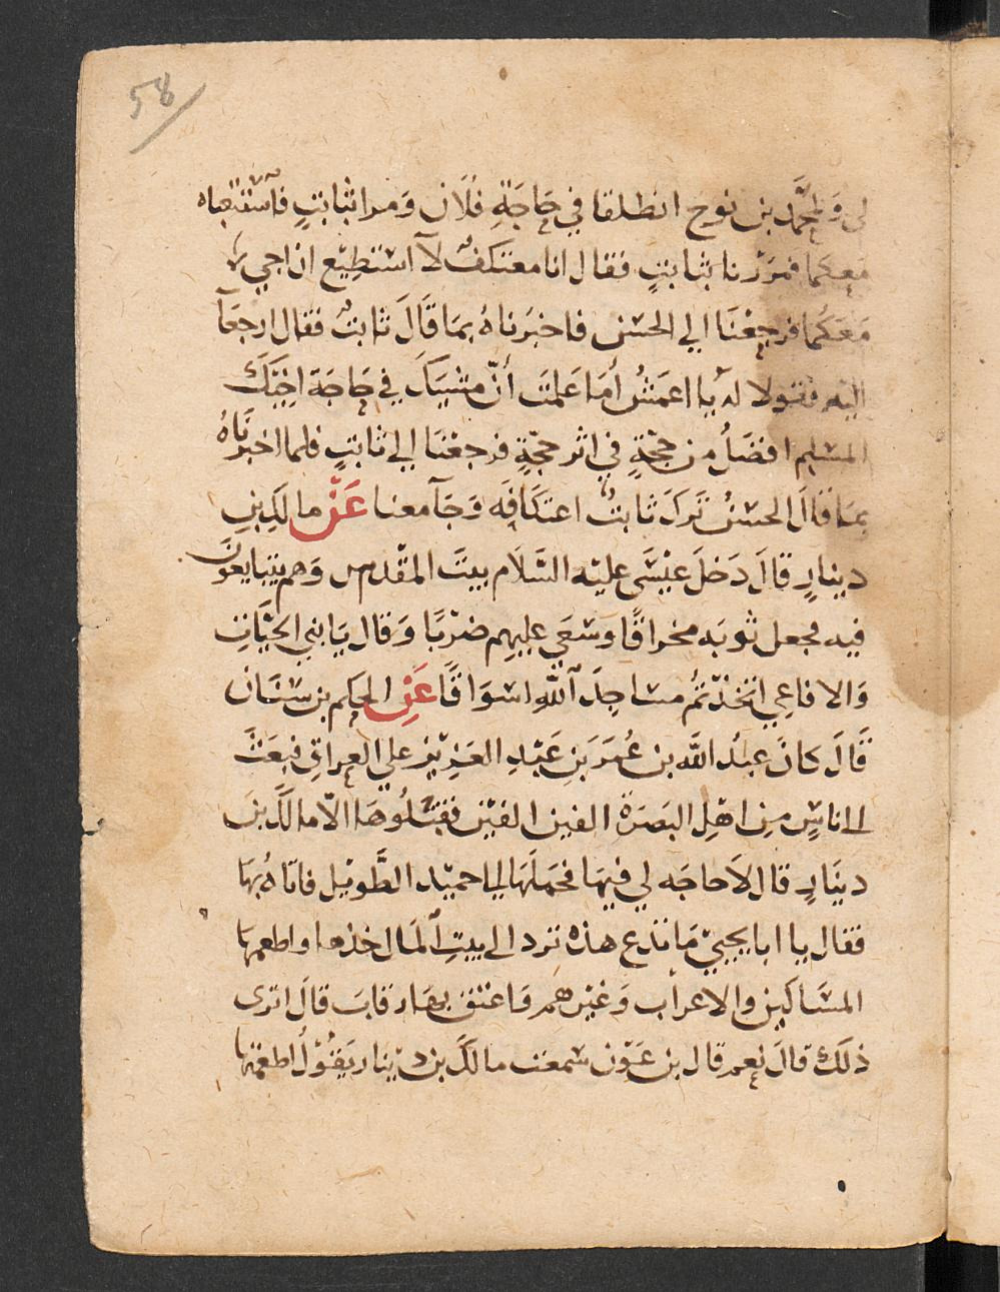 58
لي وَلمحمَّد بن نوح انطلقا في حَاجَةِ فُلَان وَمرا بثابتٍ فاَستَتْبعاه
معكما فمرَرْنا بثابتٍ فقال انا معتكفٌ لآ استطِيْع ان اجي
مَعَكُما فرجعْنَا الي الحسَن فاخبَرناهُ بمَا قَالَ ثابتٌ فقال ارجعَآ
اليه فقولا لهُ يا اعمَشُ أمَا عَلمتَ أنّ مشْيَكَ في حَاجَة اخِيَكَ
المسلم افضَلُ من حجّةٍ في اثر حجّةٍ فرجعْنَا الي ثابتٍ فلما اخبرنَاهُ
بمَا قالَ الحسَنُ تَركَ ثابتٌ اعتكَافَه وَجَآ معنا عَنْ مالَكِ بنِ
دينارٍ قالَ دَخلَ عيْسَي عليْه السَّلَام بيتَ المقْدس وَهم يتبايعونَ
فيه فجعل ثوبَه مخراقًا وسَعَي عليهِم ضرْبًا وَقال يَا بني الحيَّاتِ
وَالافاعِي اتخذْتُم مساجِدَ آللّهِ اسْوَاقًا عَنِ الحكم بن سنَان
قَالَ كانَ عبدُ اللَّه بن عُمَرَ بَنِ عَبْدِ العَزِيْز علي العراقِ فبعَثَ
الي اناسٍ مِن اهْلِ البَصَرَةَ الفين الفيْن فقبَلُوهَا الاّ مالكَ بنَ
دينَارٍ قال لَاحاجَه لي فيهَا فحَملَهَا اليَا حميْد الطَّويْل فاتَاهُ بهَا
فقال يا ابا يحييْ مَا تدع هذه ترد الي بيتِ ٱلمَال خذها واطعمهَا
المسَاكين والاعراب وَغيْرهم وَاعتق بهَا رقابَ قالَ اترى
ذلَكَ قالَ نعم قال بن عَوْن سَمعَت مالكَ بن ديْنار يَقُوْلُ اطعمَتها